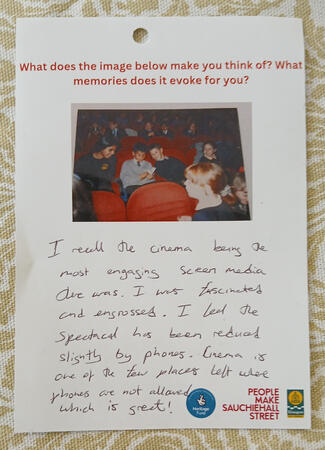 What does the image below make you think of? What
memories does it evoke for you?
I recall the cinema being the
most engaging screen media
there was. I was fascinated
and engrossed. I feel the
Spectacal has been reduced
slightly by phones. Cinema is
one of the few places left where
phones are not allowed
which is great!
Heritage
Fund
PEOPLE
MAKE
SAUCHIEHALL
STREET